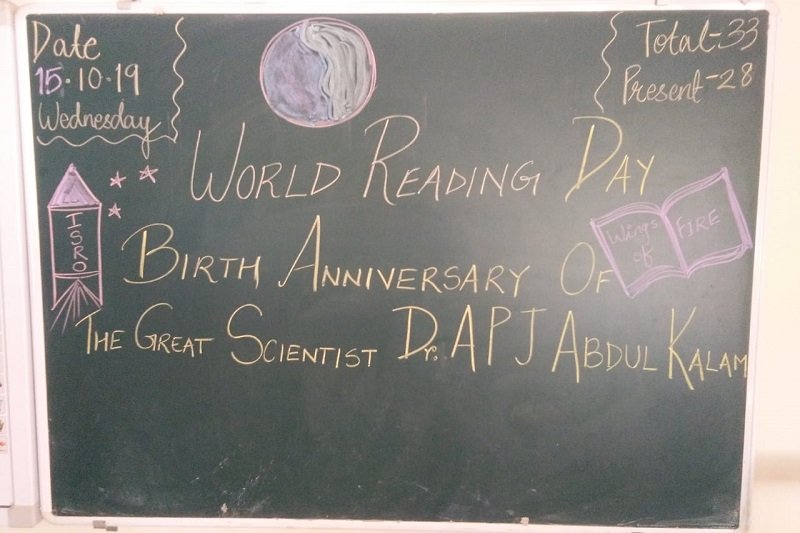 Date
15.10.19
Wednesday
Total-33
Present-28
WORLD READING DAY
ISRO
Wings of
FIRE
BIRTH ANNIVERSARY OF
THE GREAT SCIENTIST Dr. A P J ABDUL KALAM